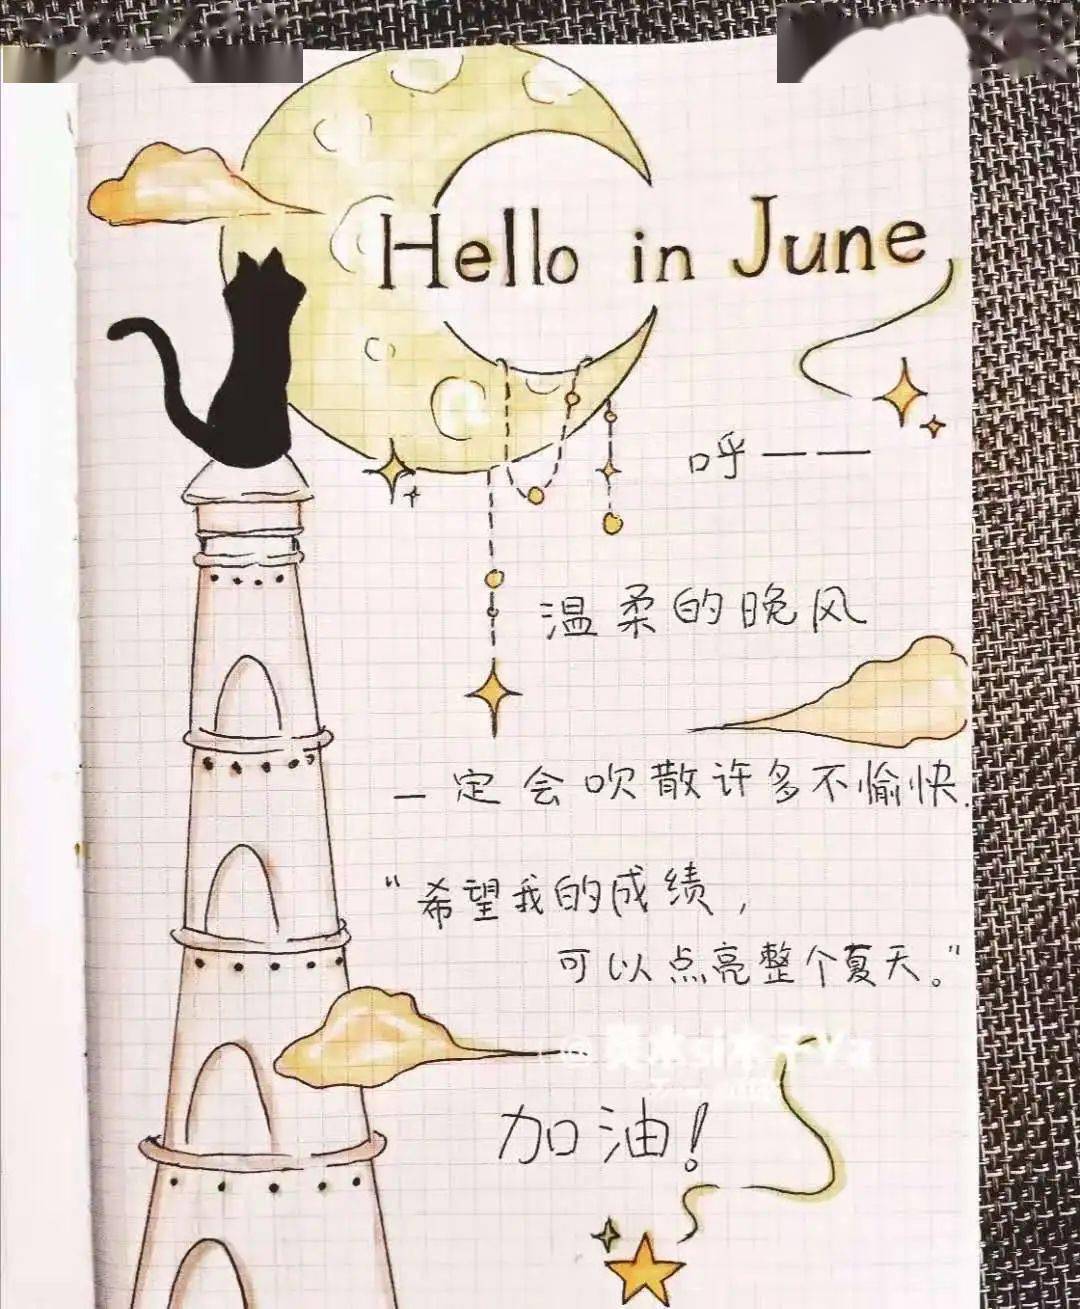 Hello in June
呼——
温柔的晚风
一定会吹散许多不愉快.
“希望我的成绩，
可以点亮整个夏天。”
加油！